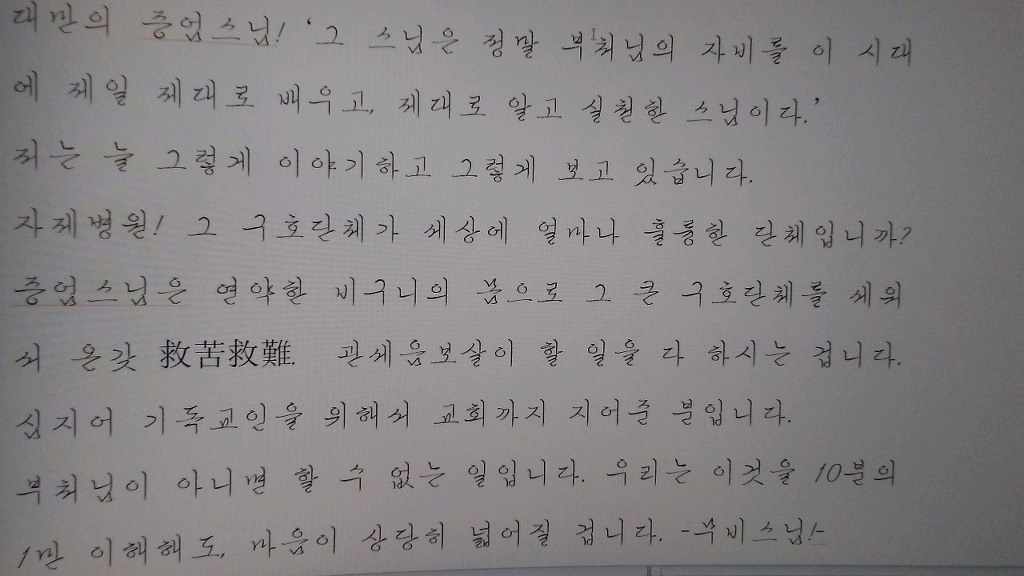 대만의 증엄스님! '그 스님은 정말 부처님의 자비를 이 시대
에 제일 제대로 배우고, 제대로 알고 실천한 스님이다.'
저는 늘 그렇게 이야기하고 그렇게 보고 있습니다.
자제병원! 그 구호단체가 세상에 얼마나 훌륭한 단체입니까?
증엄스님은 연약한 비구니의 몸으로 그 큰 구호단체를 세워
서 온갖 救苦救難. 관세음보살이 할 일을 다 하시는 겁니다.
심지어 기독교인을 위해서 교회까지 지어준 분입니다.
부처님이 아니면 할 수 없는 일입니다. 우리는 이것을 10분의
1만 이해해도, 마음이 상당히 넓어질 겁니다. -무비스님!-